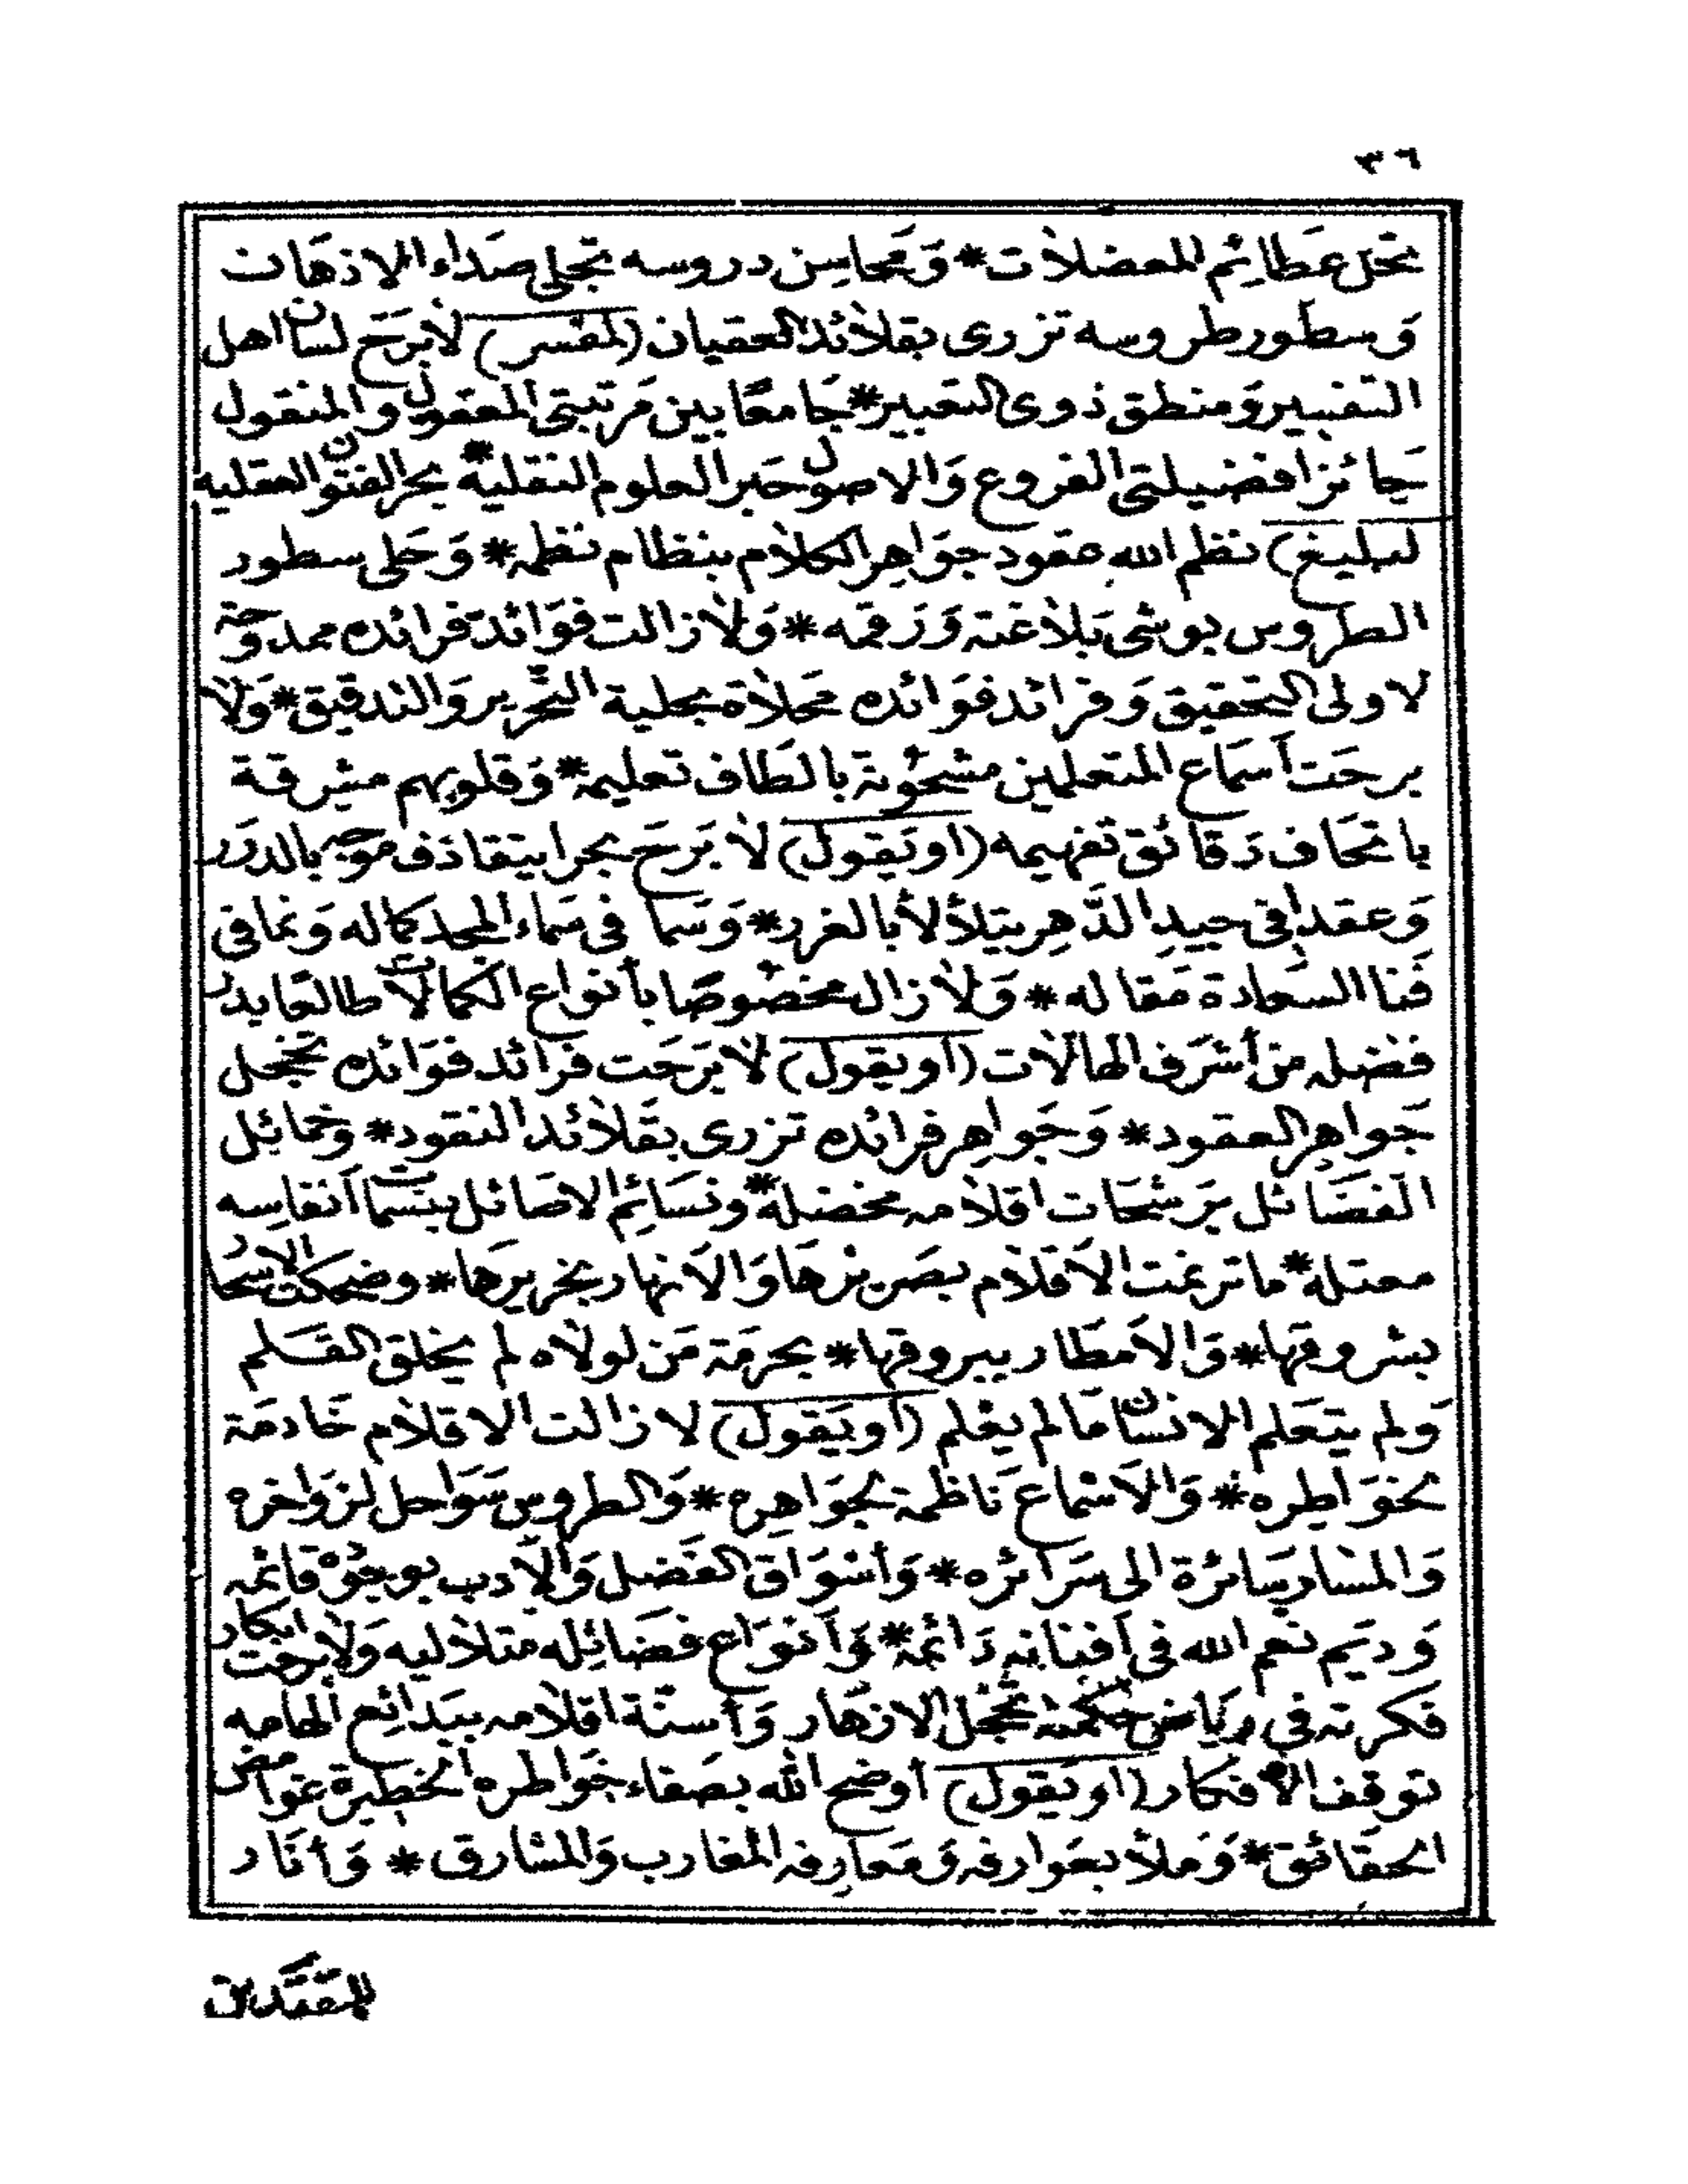 ٣٦
تحل عَظائِم المعضلات * وَمَحاسِن دروسه تجلى صَداء الاذهَان
وَسطور طروسه تزرى بقلائد العقيان (لمفسر) لابَرَحَ لسان اهل
التفسير وَمنطق ذوى التعبير * جَامعًا بين مَرتبتى المعقول والمنقول
حَائزا فضيلتى الفروع وَالاصول حَبر العلوم النقلية * بحر الفنون العقليه
لبليغ) نظم الله عقود جوَاهِر الكلام بنظام نظمه * وَحَلى سطور
الطروس بوشى بَلاغته وَرَقمه * وَلازالت فوَائد فرائده ممدوحة
لاولى التحقيق وَفرائد فوَائده محَلاة بحلية التحْرير وَالتدقيق * وَلا
برحَت أسمَاع المتعلمين مشحُونة بالطَاف تعليمه * وَقلوبهم مشرقة
باتحَاف دَقائق تفهيمه (او يَقول) لابَرَحَ بحرا يتقاذف موجه بالدرَر
وَعقدا فى جيدِ الدَّهِر يتلألأ بالغرر * وَسَما فى سَماء المجد كماله وَنما فى
فنا السعَادة مَقاله * وَلازال مخصُوصًا بأنواع الكمالات طالعًا بدر
فضله من أشرَف الهالات (أو يقول) لابَرَحَت فرائد فوَائده تخجل
جَواهِر العقود * وَجَواهِر فرائده تزرى بقَلائد النقود * وَخمائل
الفضَائل بَرشحَات اقلامه مخضلة * ونسَائِم الاصَائل بنسمات أنفاسِه
معتلة * ما ترنمت الأقلام بصَريرْهَا وَالأنهار بخريرهَا * وضحكت الاسحار
بشروقها * وَالأمطار ببروقها * بحرمَة مَن لولاه لم يخلق القَلم
وَلم يتعَلم الانسان مَا لم يعْلم (أو يَقول) لازالت الاقلام خَادمَة
بخوَاطِره * وَالأسْماع نَاظمة بجوَاهِره * وَالطروس سَوَاحل لزوَاخره
وَالمسَار سَائرة الى سَرَائره * وَأسْوَاق الفَضل وَالأدب بوجُوْده قائمه
وَديَم نعم الله فى أفنانه دَائمة * وَأنوَاع فضَائِله متلاليه وَلابرحت ابكار
فكرته فى ريَاض حكمته تخجل الازهَار وَأسنّة اقلامه ببَدائِع الهامه
توقف الافكار (او يَقول) أوضح الله بصَفاء خوَاطره الخطِيرة غوامض
الحقَائق * وَمَلأ بعَوارفه وَمَعارِفه المغارب وَالمشارق * وَأنَار
للمقتَدين